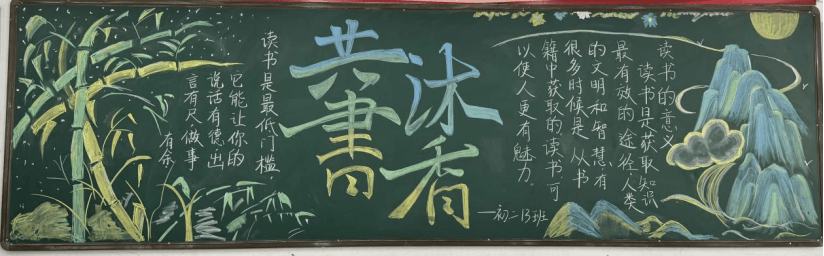 共沐
書香
读书的意义
读书是获取知识
最有效的途径,人类
的文明和智慧,有
很多时候是从书
籍中获取的读书,可
以使人更有魅力。
—初二13班
读书是最低门槛,
它能让你的
说话有德出
言有尺做事
有余